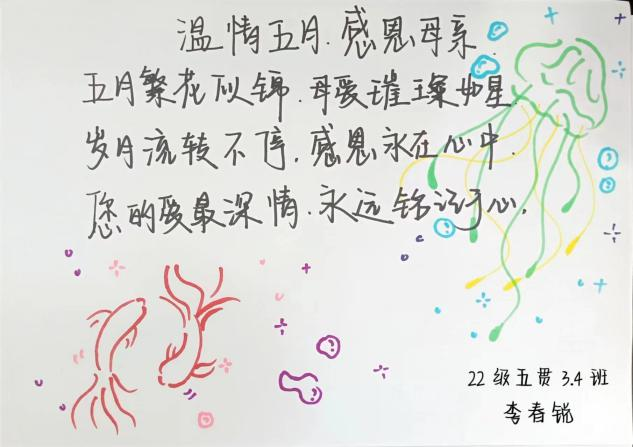 温情五月.感恩母亲.
五月繁花似锦.母爱璀璨如星.
岁月流转不停,感恩永在心中.
您的爱最深情.永远锦记于心,
22级五贯3.4班
李春锐